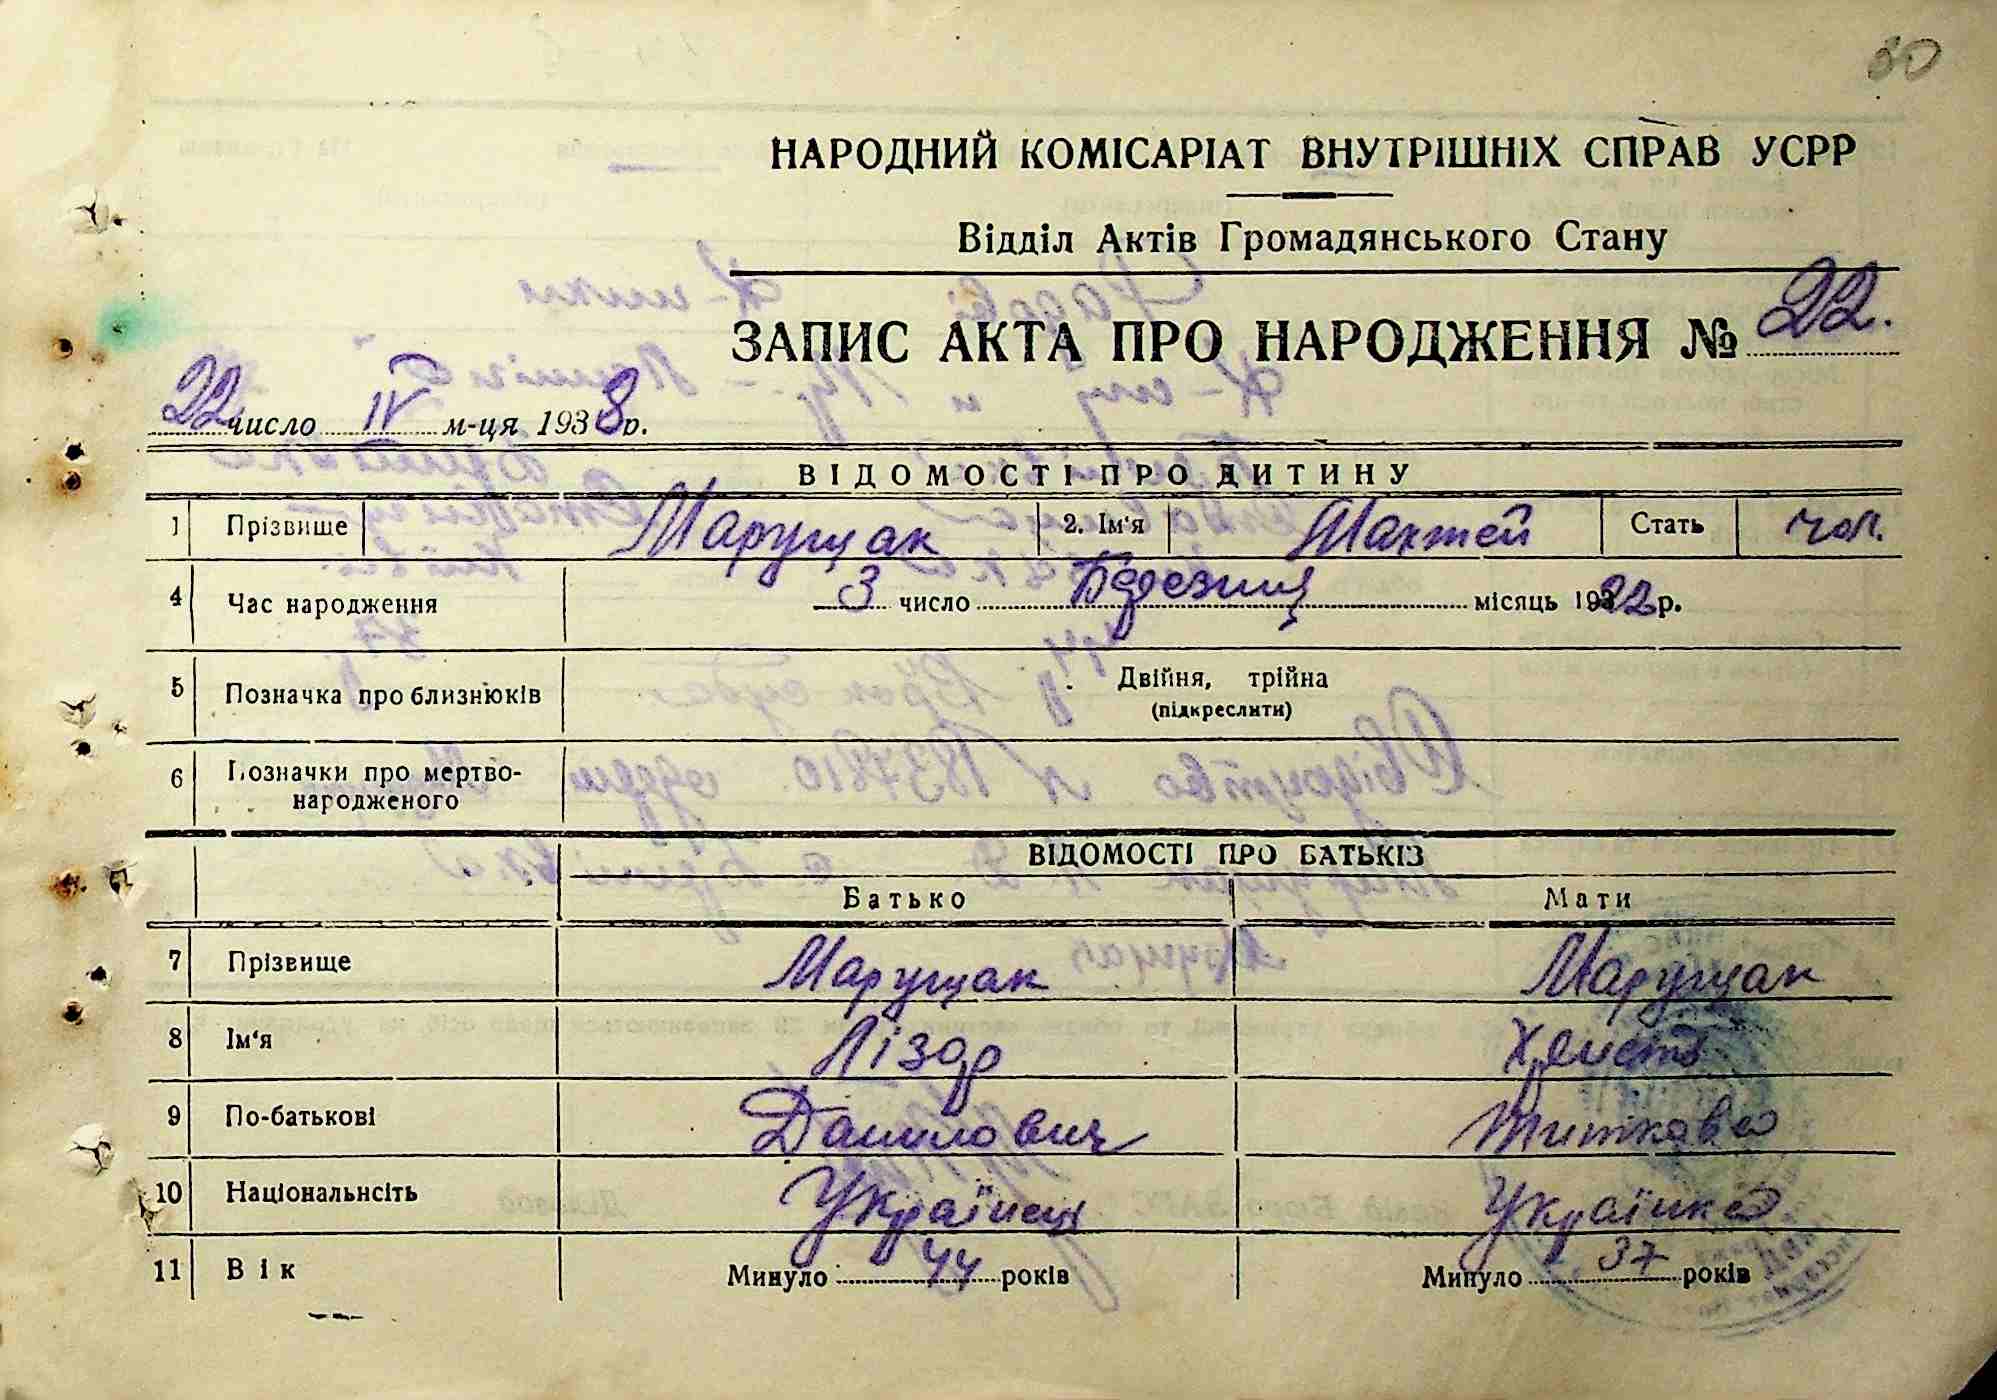 80
НАРОДНИЙ КОМІСАРІАТ ВНУТРІШНІХ СПРАВ УСРР
Відділ Актів Громадянського Стану
ЗАПИС АКТА ПРО НАРОДЖЕННЯ № 22.
22 число IV м-ця 1938 р.
ВІДОМОСТІ ПРО ДИТИНУ
1 Прізвище Марущак 2. Ім'я Махтей Стать чол.
4 Час народження 3 число Березня місяць 1922 р.
5 Позначка про близнюків Двійня, трійна
(підкреслити)
6 Позначки про мертво-
народженого
ВІДОМОСТІ ПРО БАТЬКІВ
Батько Мати
7 Прізвище Марущак Марущак
8 Ім'я Лізар Христя
9 По-батькові Данилович Титковна
10 Національнсіть Українець Українка
11 Вік Минуло 44 років Минуло 37 років